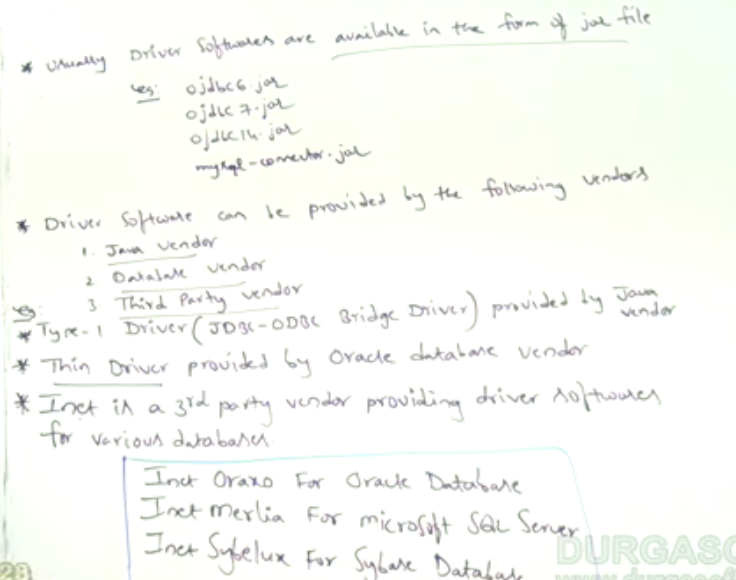 * Usually Driver Softwares are available in the form of jar file
eg: ojdbc6.jar
ojdbc7.jar
ojdbc14.jar
mysql-connector.jar
* Driver Software can be provided by the following vendors
1. Java vendor
2. Database vendor
3. Third Party vendor
eg:
* Type-1 Driver (JDBC-ODBC Bridge Driver) provided by Java vendor
* Thin Driver provided by Oracle database vendor
* Inet is a 3rd party vendor providing driver softwares
for various databases
Inet Oraxo For Oracle Database
Inet Merlia For microsoft SQL Server
Inet Sybelux For Sybase Database
28
DURGASO